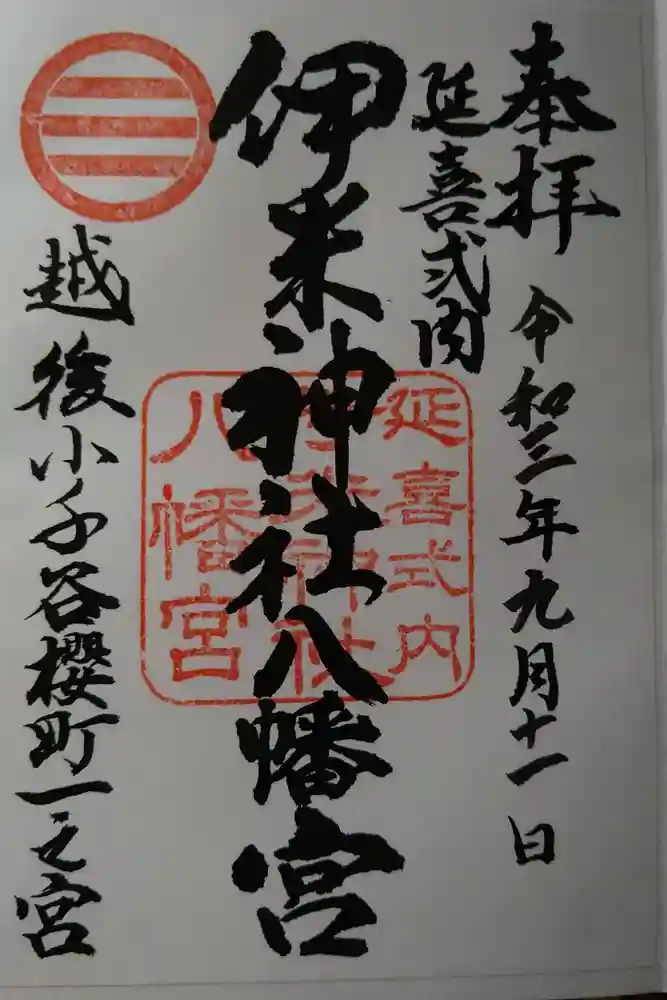 奉拝 令和三年九月十一日
延喜式内
伊米神社八幡宮
越後小千谷櫻町一之宮
延喜式内
伊米神社
八幡宮